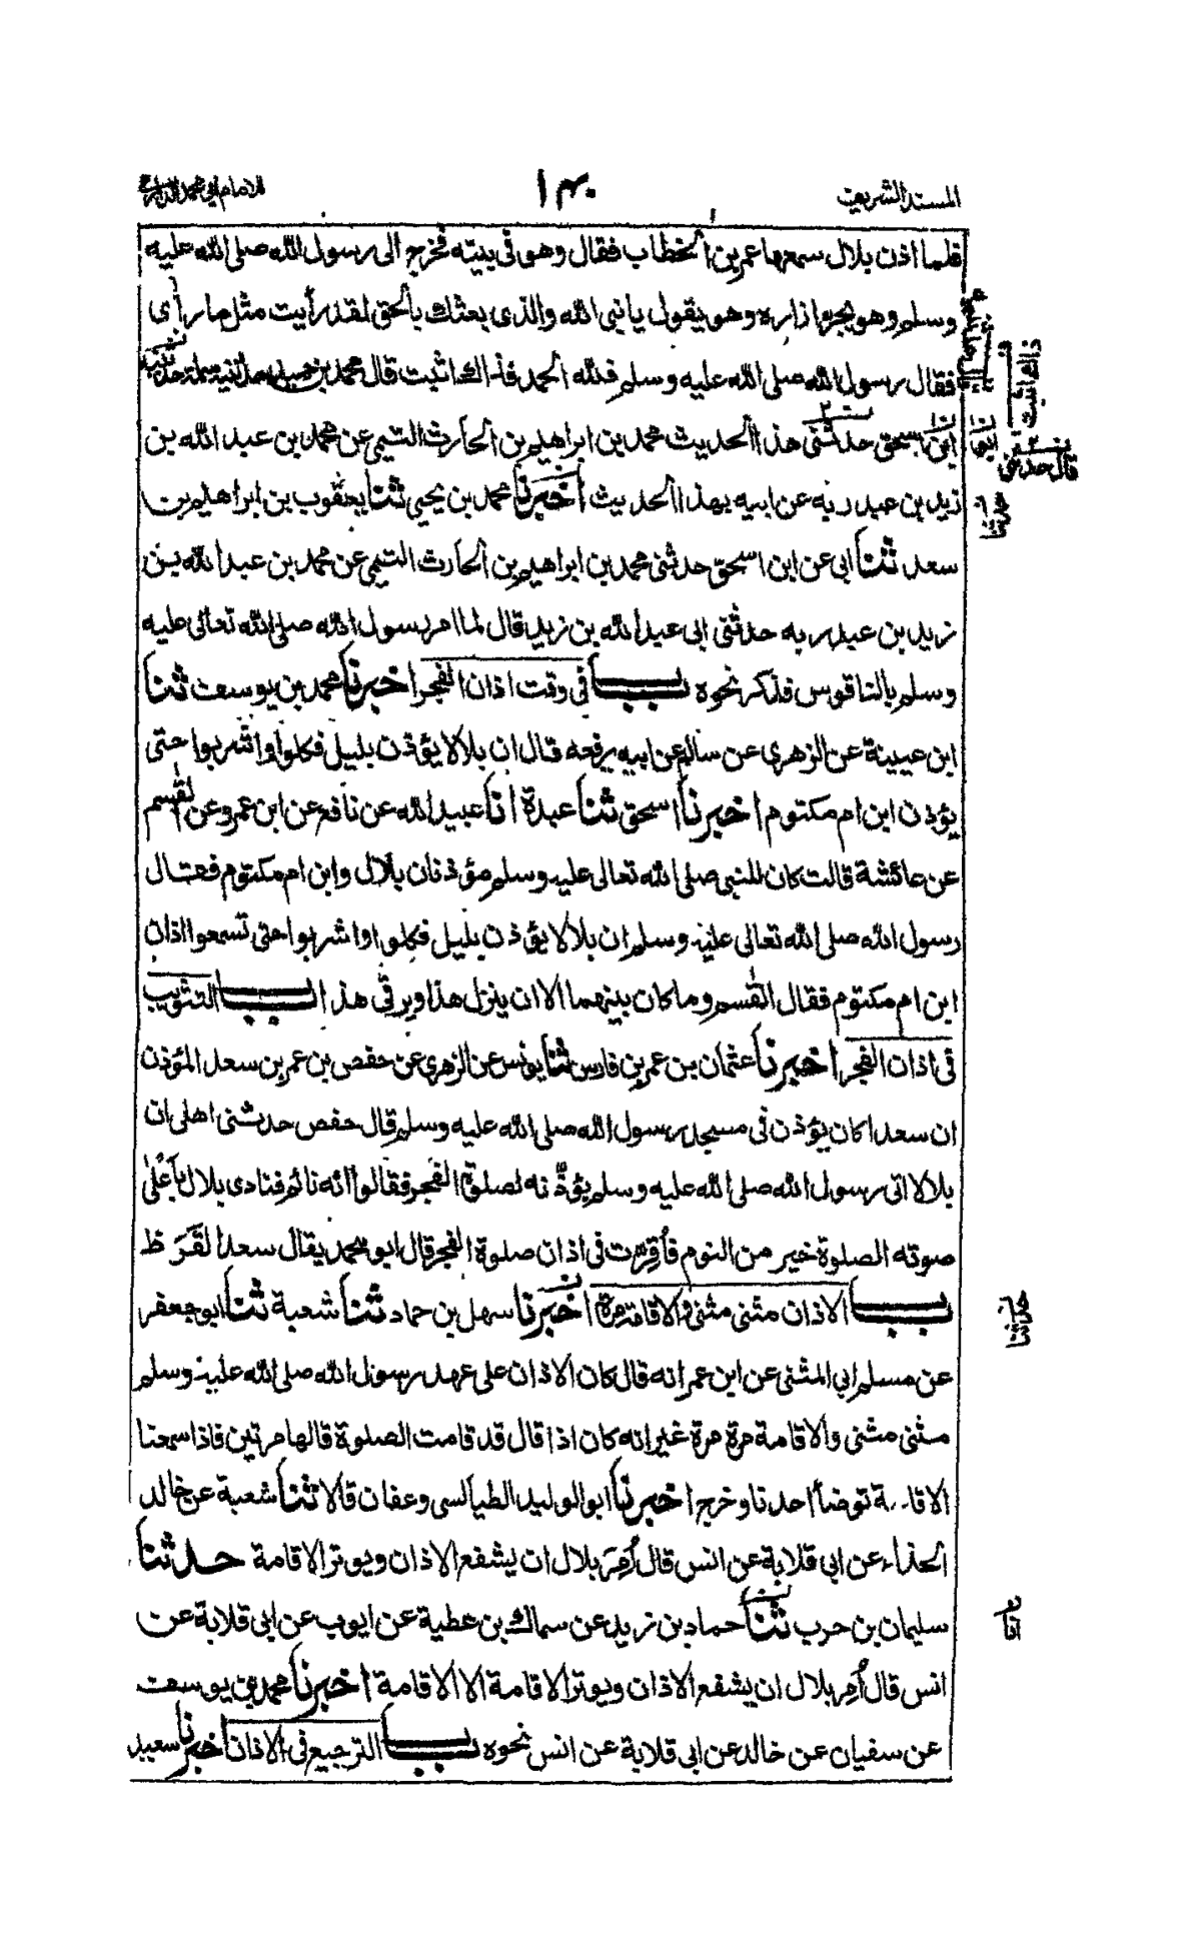 المسند الشريف
١٤٠
للامام ابي محمد الدارمي
فلما اذن بلال سمعها عمر بن الخطاب فقال وهو في بيته فخرج الى رسول الله صلى الله عليه
وسلم وهو يجر ازاره وهو يقول يا نبي الله والذي بعثك بالحق لقد رأيت مثل ما رأى
فقال رسول الله صلى الله عليه وسلم فلله الحمد فذاك اثبت قال محمد بن حميد حدثنيه سلمة حدثنيه
ابن اسحق حدثني هذا الحديث محمد بن ابراهيم بن الحارث التيمي عن محمد بن عبد الله بن
زيد بن عبد ربه عن ابيه بهذا الحديث اخبرنا محمد بن يحيى ثنا يعقوب بن ابراهيم بن
سعد ثنا ابي عن ابن اسحق حدثني محمد بن ابراهيم بن الحارث التيمي عن محمد بن عبد الله بن
زيد بن عبد ربه حدثني ابي عبد الله بن زيد قال لما امر رسول الله صلى الله تعالى عليه
وسلم بالناقوس فذكر نحوه باب في وقت اذان الفجر اخبرنا محمد بن يوسف ثنا
ابن عيينة عن الزهري عن سالم عن ابيه يرفعه قال ان بلالا يؤذن بليل فكلوا واشربوا حتى
يؤذن ابن ام مكتوم اخبرنا اسحق ثنا عبدة انا عبيد الله عن نافع عن ابن عمر وعن القسم
عن عائشة قالت كان للنبي صلى الله تعالى عليه وسلم مؤذنان بلال وابن ام مكتوم فقال
رسول الله صلى الله تعالى عليه وسلم ان بلالا يؤذن بليل فكلوا واشربوا حتى تسمعوا اذان
ابن ام مكتوم فقال القسم وما كان بينهما الا ان ينزل هذا ويرقى هذا باب التثويب
في اذان الفجر اخبرنا عثمان بن عمر بن فارس ثنا يونس عن الزهري عن حفص بن عمر بن سعد المؤذن
ان سعدا كان يؤذن في مسجد رسول الله صلى الله عليه وسلم قال حفص حدثني اهلي ان
بلالا اتى رسول الله صلى الله عليه وسلم يؤذنه لصلوة الفجر فقالوا انه نائم فنادى بلال باعلى
صوته الصلوة خير من النوم فأقرت في اذان صلوة الفجر قال ابو محمد يقال سعد القرظ
باب الاذان مثنى مثنى والاقامة مرة اخبرنا سهل بن حماد ثنا شعبة ثنا ابو جعفر
عن مسلم ابي المثنى عن ابن عمر انه قال كان الاذان على عهد رسول الله صلى الله عليه وسلم
مثنى مثنى والاقامة مرة مرة غير انه كان اذا قال قد قامت الصلوة قالها مرتين فاذا سمعنا
الاقامة توضأ احدنا وخرج اخبرنا ابو الوليد الطيالسي وعفان قالا ثنا شعبة عن خالد
الحذاء عن ابي قلابة عن انس قال أمر بلال ان يشفع الاذان ويوتر الاقامة حدثنا
سليمان بن حرب ثنا حماد بن زيد عن سماك بن عطية عن ايوب عن ابي قلابة عن
انس قال أمر بلال ان يشفع الاذان ويوتر الاقامة الا الاقامة اخبرنا محمد بن يوسف
عن سفيان عن خالد عن ابي قلابة عن انس نحوه باب الترجيع في الاذان اخبرنا سعيد
ذاك اثبت
قال حدثني
حدثنا
حدثنا